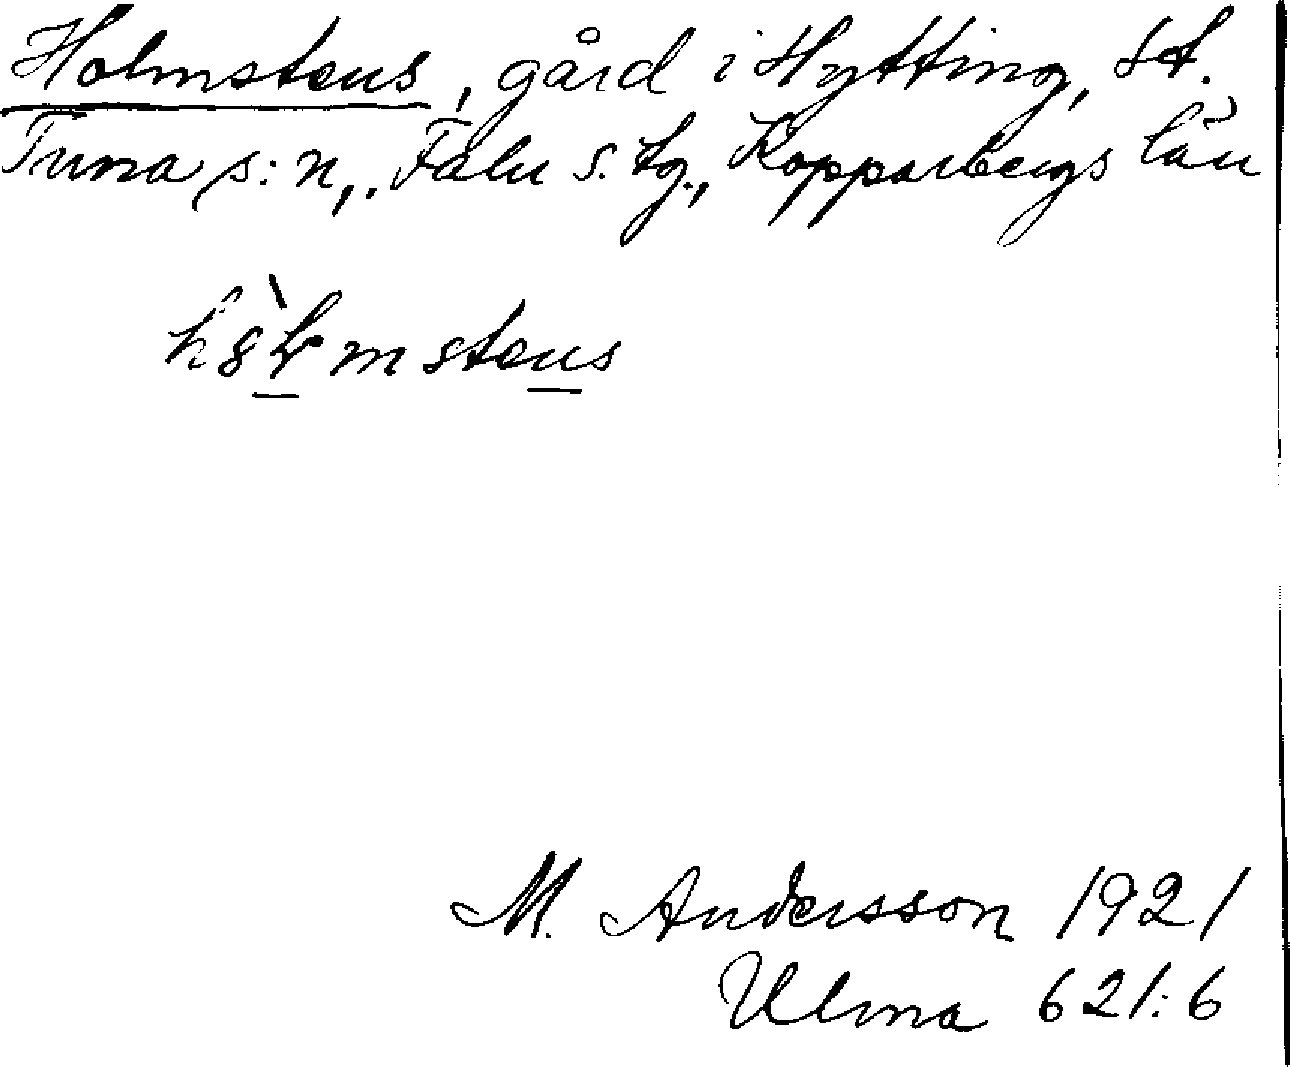 Holmstens, gård i Hytting, St.
Tuna s:n, Falu s. tg., Kopparbergs län
M. Andersson 1921
Ulma 621:6